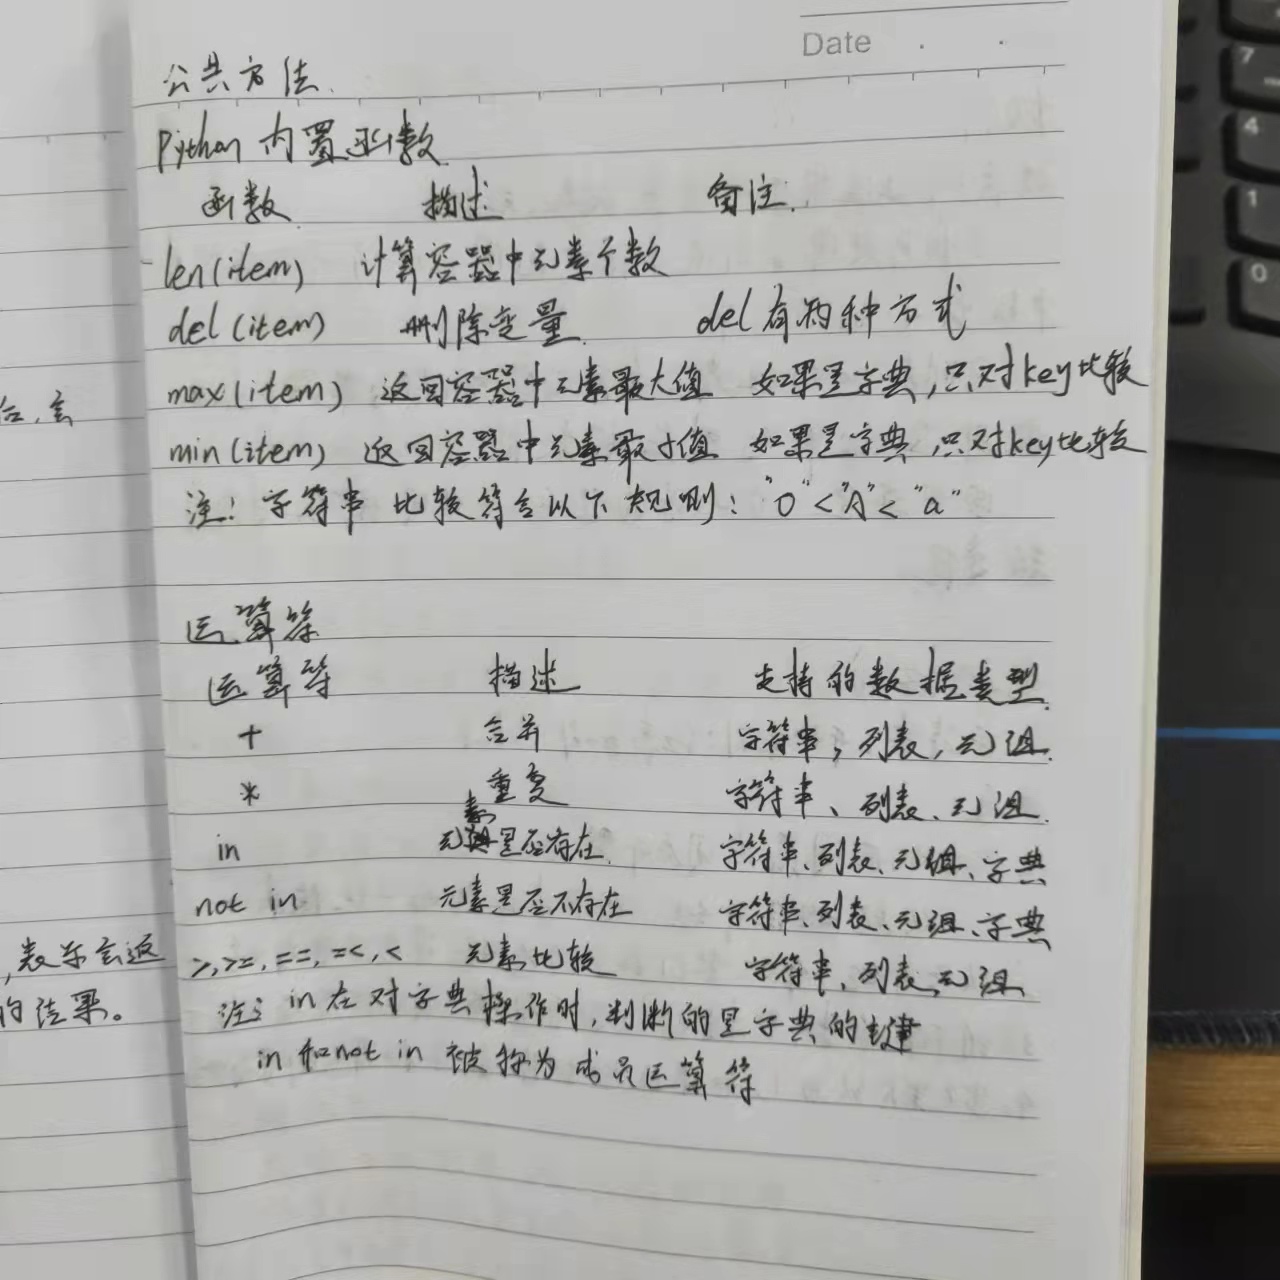 Date
公共方法.
Python 内置函数
函数 描述 备注.
len(item) 计算容器中元素个数
del(item) 删除变量. del有两种方式
max(item) 返回容器中元素最大值 如果是字典,只对key比较
min(item) 返回容器中元素最小值 如果是字典,只对key比较
注: 字符串 比较符合以下规则: "0" < "A" < "a"
运算符
运算符 描述 支持的数据类型.
+ 合并 字符串, 列表, 元组.
* 重复 字符串、列表、元组.
in 元素是否存在. 字符串、列表、元组、字典
not in 元素是否不存在 字符串、列表、元组、字典
>, >=, ==, =<, < 元素比较 字符串、列表、元组
注: in 在对字典操作时,判断的是字典的键
in 和 not in 被称为成员运算符
,表示会返
的结果。